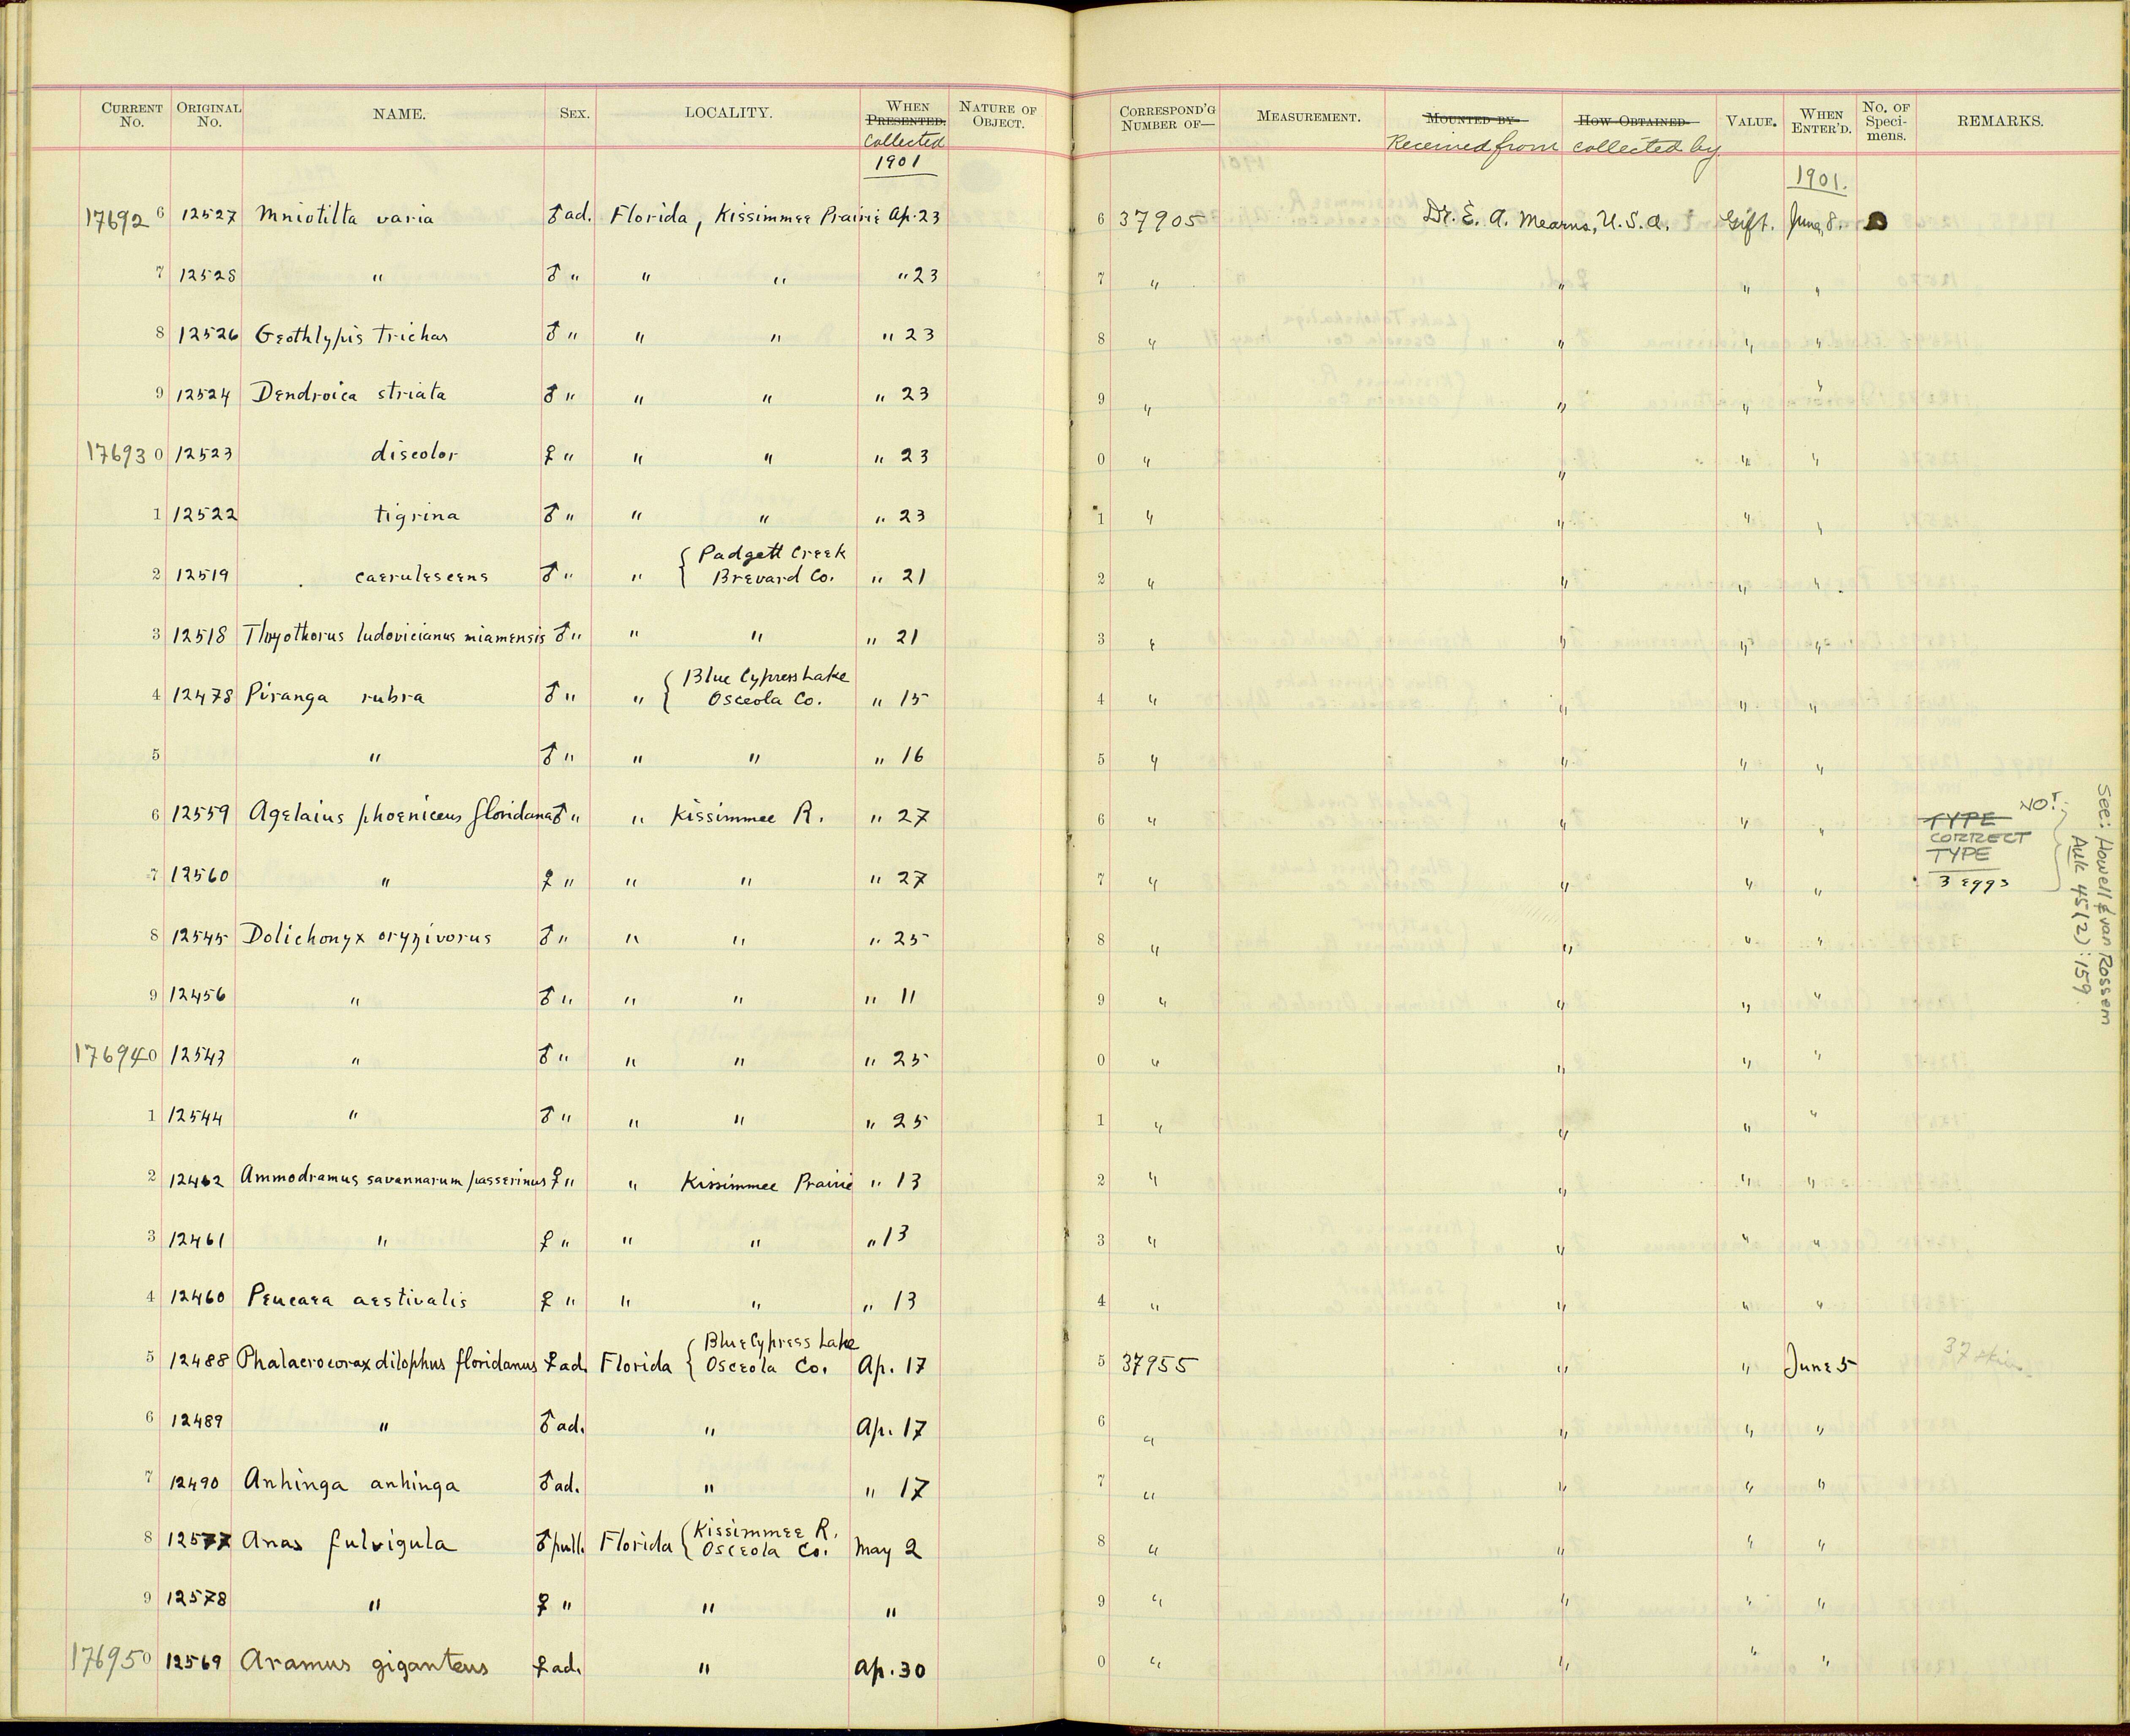 CURRENT No. ORIGINAL No. NAME. SEX. LOCALITY. WHEN PRESENTED. Collected NATURE OF OBJECT. CORRESPOND'G NUMBER OF— MEASUREMENT. MOUNTED BY Received from HOW OBTAINED collected by VALUE. WHEN ENTER'D. No. OF Speci-mens. REMARKS.
1901 1901.
17692 6 12527 Mniotilta varia ♂ ad. Florida, Kissimmee Prairie Ap. 23 6 37905 Dr. E. A. Mearns, U.S.A. Gift. June 8.
7 12528 " ♂ " " " " 23 7 " " " "
8 12526 Geothlypis trichas ♂ " " " " 23 8 " " " "
9 12524 Dendroica striata ♂ " " " " 23 9 " " " "
17693 0 12523 discolor ♀ " " " " 23 0 " " " "
1 12522 tigrina ♂ " " " " 23 1 " " " "
2 12519 caerulescens ♂ " " { Padgett Creek Brevard Co. " 21 2 " " " "
3 12518 Thryothorus ludovicianus miamensis ♂ " " " " 21 3 " " " "
4 12478 Piranga rubra ♂ " " { Blue Cypress Lake Osceola Co. " 15 4 " " " "
5 " ♂ " " " " 16 5 " " " "
6 12559 Agelaius phoeniceus floridanus ♂ " " Kissimmee R. " 27 6 " " " " TYPE NO!
CORRECT TYPE
7 12560 " ♀ " " " " 27 7 " " " " 3 eggs
See: Howell & van Rossem
Auk 45(2):159.
8 12545 Dolichonyx oryzivorus ♂ " " " " 25 8 " " " "
9 12456 " ♂ " " " " 11 9 " " " "
17694 0 12543 " ♂ " " " " 25 0 " " " "
1 12544 " ♂ " " " " 25 1 " " " "
2 12462 Ammodramus savannarum passerinus ♀ " " Kissimmee Prairie " 13 2 " " " "
3 12461 " ♀ " " " " 13 3 " " " "
4 12460 Peucaea aestivalis ♀ " " " " 13 4 " " " "
5 12488 Phalacrocorax dilophus floridanus ♀ ad. Florida { Blue Cypress Lake Osceola Co. Ap. 17 5 37955 " " June 5 37 skins
6 12489 " ♂ ad. " Ap. 17 6 " " " "
7 12490 Anhinga anhinga ♂ ad. " " 17 7 " " " "
8 12577 Anas fulvigula ♂ pull. Florida { Kissimmee R. Osceola Co. May 2 8 " " " "
9 12578 " ♀ " " " 9 " " " "
17695 0 12569 Aramus giganteus ♀ ad. " Ap. 30 0 " " " "